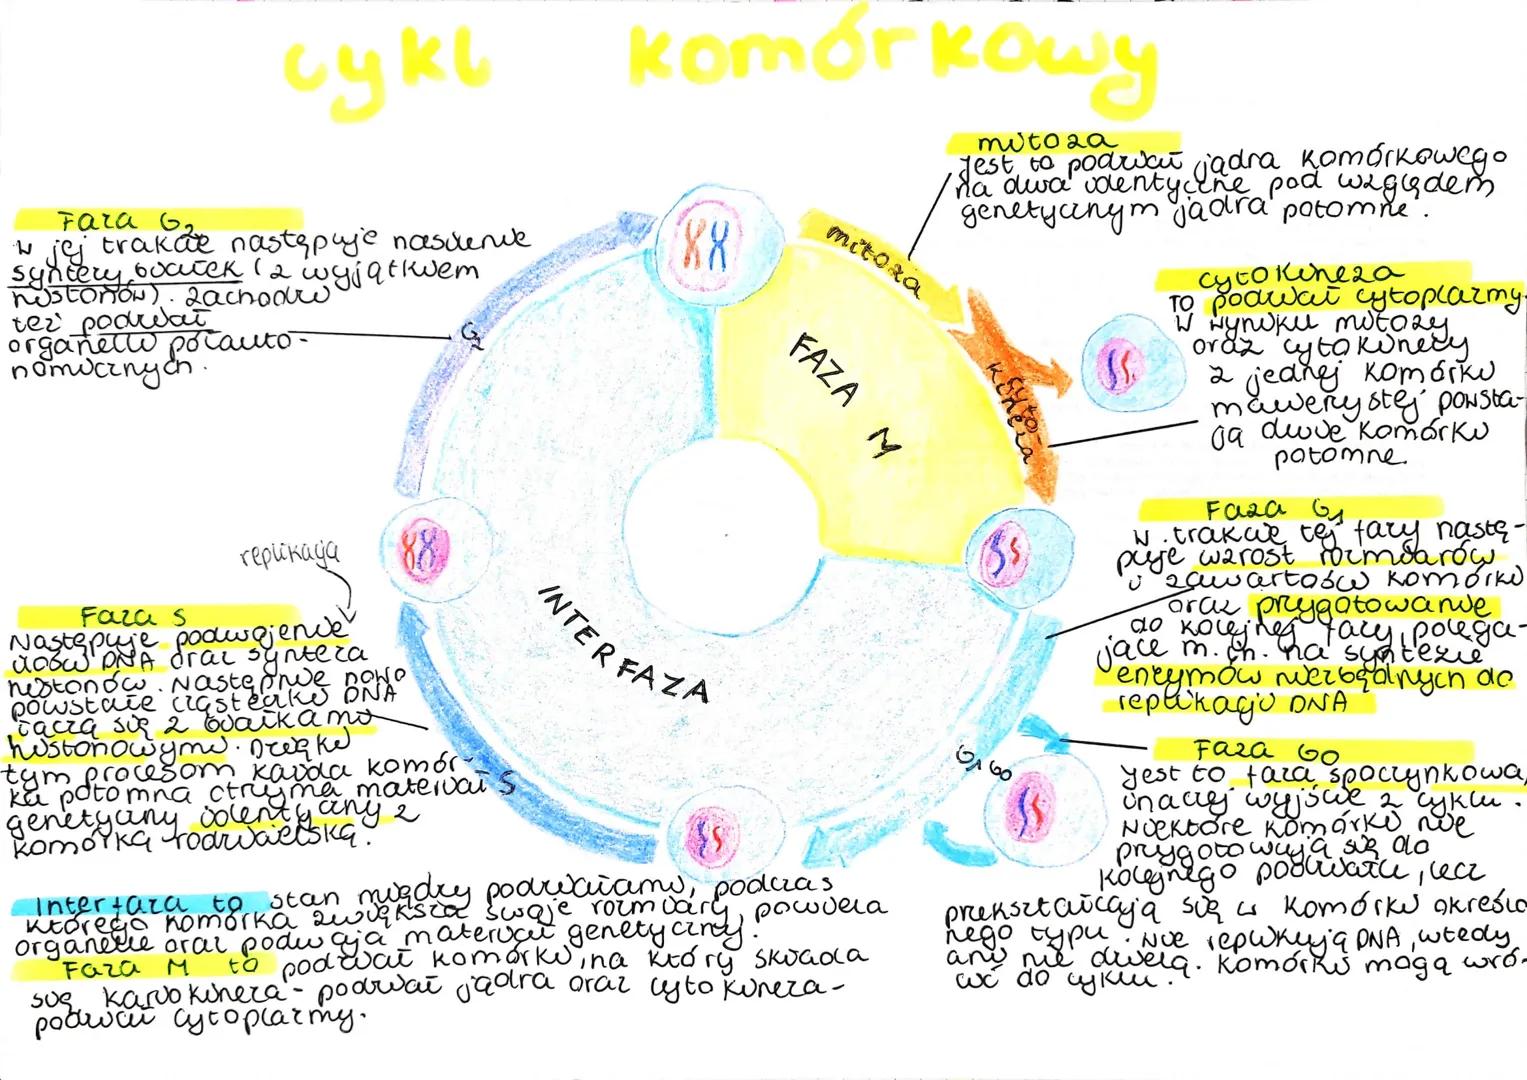 cykl komórkowy
mitoza
jest to podział jądra komórkowego
na dwa identyczne pod względem
genetycznym jądra potomne.
Faza G2
W jej trakcie następuje nasilenie
syntezy białek (z wyjątkiem
histonów). Zachodzi
też podział
organelli półauto-
nomicznych.
cytokineza
To podział cytoplazmy.
W wyniku mitozy
oraz cytokinezy
z jednej komórki
macierzystej powsta-
ją dwie komórki
potomne.
mitoza
cyto-
kineza
FAZA M
G2
INTERFAZA
S
G1
G0
Faza G1
W trakcie tej fazy nastę-
puje wzrost rozmiarów
i zawartości komórki
oraz przygotowanie
do kolejnej fazy, polega-
jące m.in. na syntezie
enzymów niezbędnych do
replikacji DNA
replikacja
Faza S
Następuje podwojenie
ilości DNA oraz synteza
histonów. Następnie nowo
powstałe cząsteczki DNA
łączą się z białkami
histonowymi. Dzięki
tym procesom każda komór-
ka potomna otrzyma materiał
genetyczny identyczny z
komórką rodzicielską.
Faza G0
Jest to faza spoczynkowa,
inaczej wyjście z cyklu.
Niektóre komórki nie
przygotowują się do
kolejnego podziału, lecz
przekształcają się w komórki określo
nego typu. Nie replikują DNA, wtedy
ani nie dzielą. Komórki mogą wró-
cić do cyklu.
Interfaza to stan między podziałami, podczas
którego komórka zwiększa swoje rozmiary, powiela
organelle oraz podwaja materiał genetyczny.
Faza M to podział komórki, na który składa
się kariokineza - podział jądra oraz cytokineza -
podział cytoplazmy.